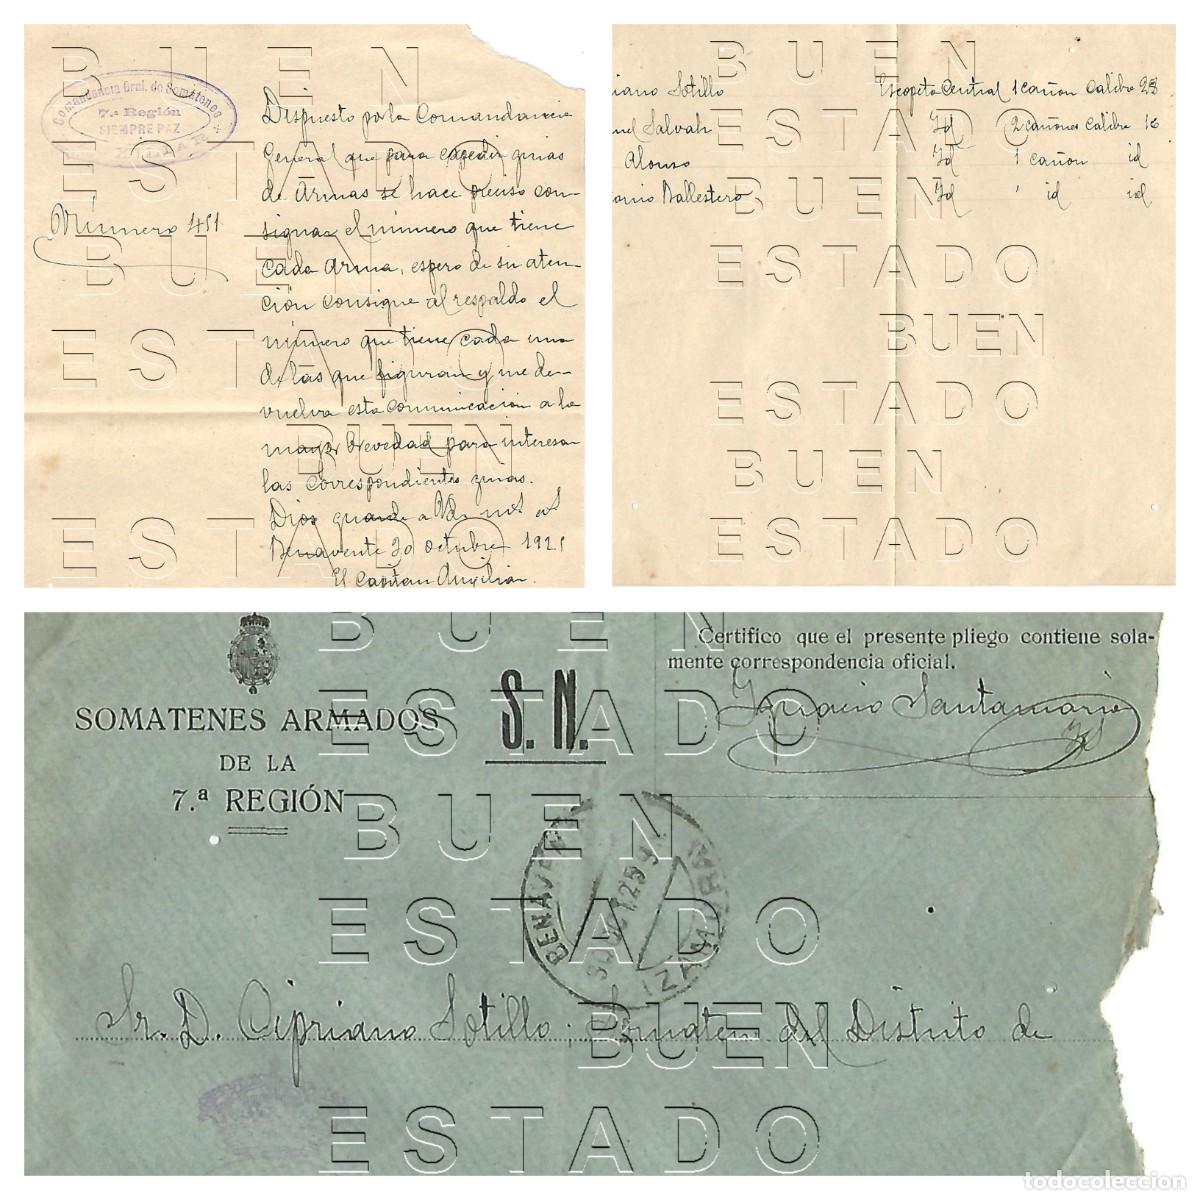 Comandancia Gral. de Somatenes
7.ª Región
SIEMPRE PAZ
Número 451
Dispuesto por la Comandancia
General que para expedir guias
de Armas se hace preciso con-
signar el número que tiene
cada Arma, espero de su aten-
ción consigne al respaldo el
número que tiene cada una
de las que figuran y me de-
vuelva esta comunicación a la
mayor brevedad para interesar
las correspondientes guias.
Dios guarde a Vd. m s as
Benavente 30 octubre 1925
El Capitan Auxiliar.
riano Sotillo Escopeta Central 1 cañon Calibre 28
uel Salvah Id 2 cañones Calibre 16
Alonso Id 1 cañon id
onio Ballestero Id id id
SOMATENES ARMADOS
DE LA
7.ª REGIÓN
S. N.
Certifico que el presente pliego contiene sola-
mente correspondencia oficial.
Ignacio Santamaria
BENAVENTE
30 OCT 25
(ZAMORA)
Sr. D. Cipriano Sotillo, Somaten del Distrito de
BUEN
ESTADO
BUEN
ESTADO
BUEN
ESTADO
BUEN
ESTADO
BUEN
ESTADO
BUEN
ESTADO
BUEN
ESTADO
BUEN
ESTADO
BUEN
ESTADO
BUEN
ESTADO
BUEN
ESTADO
todocoleccion.net